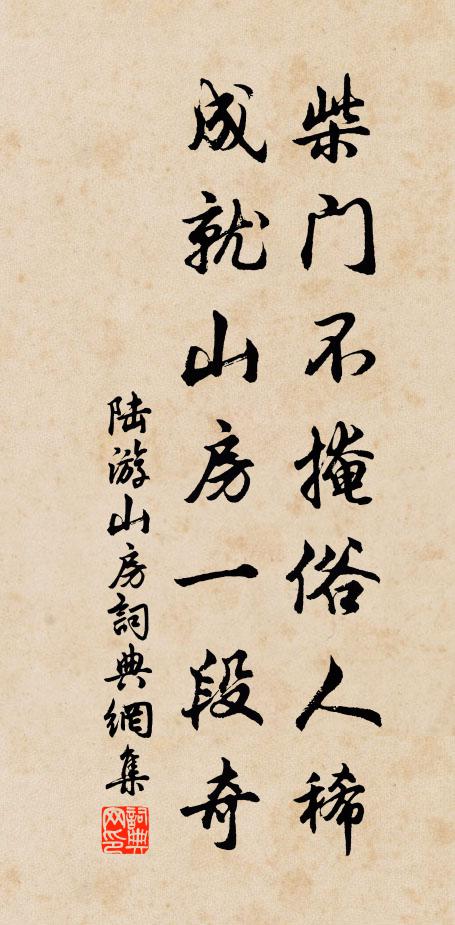 柴门不掩俗人稀
成就山房一段奇
陆游山房詞典網集
詞典网印